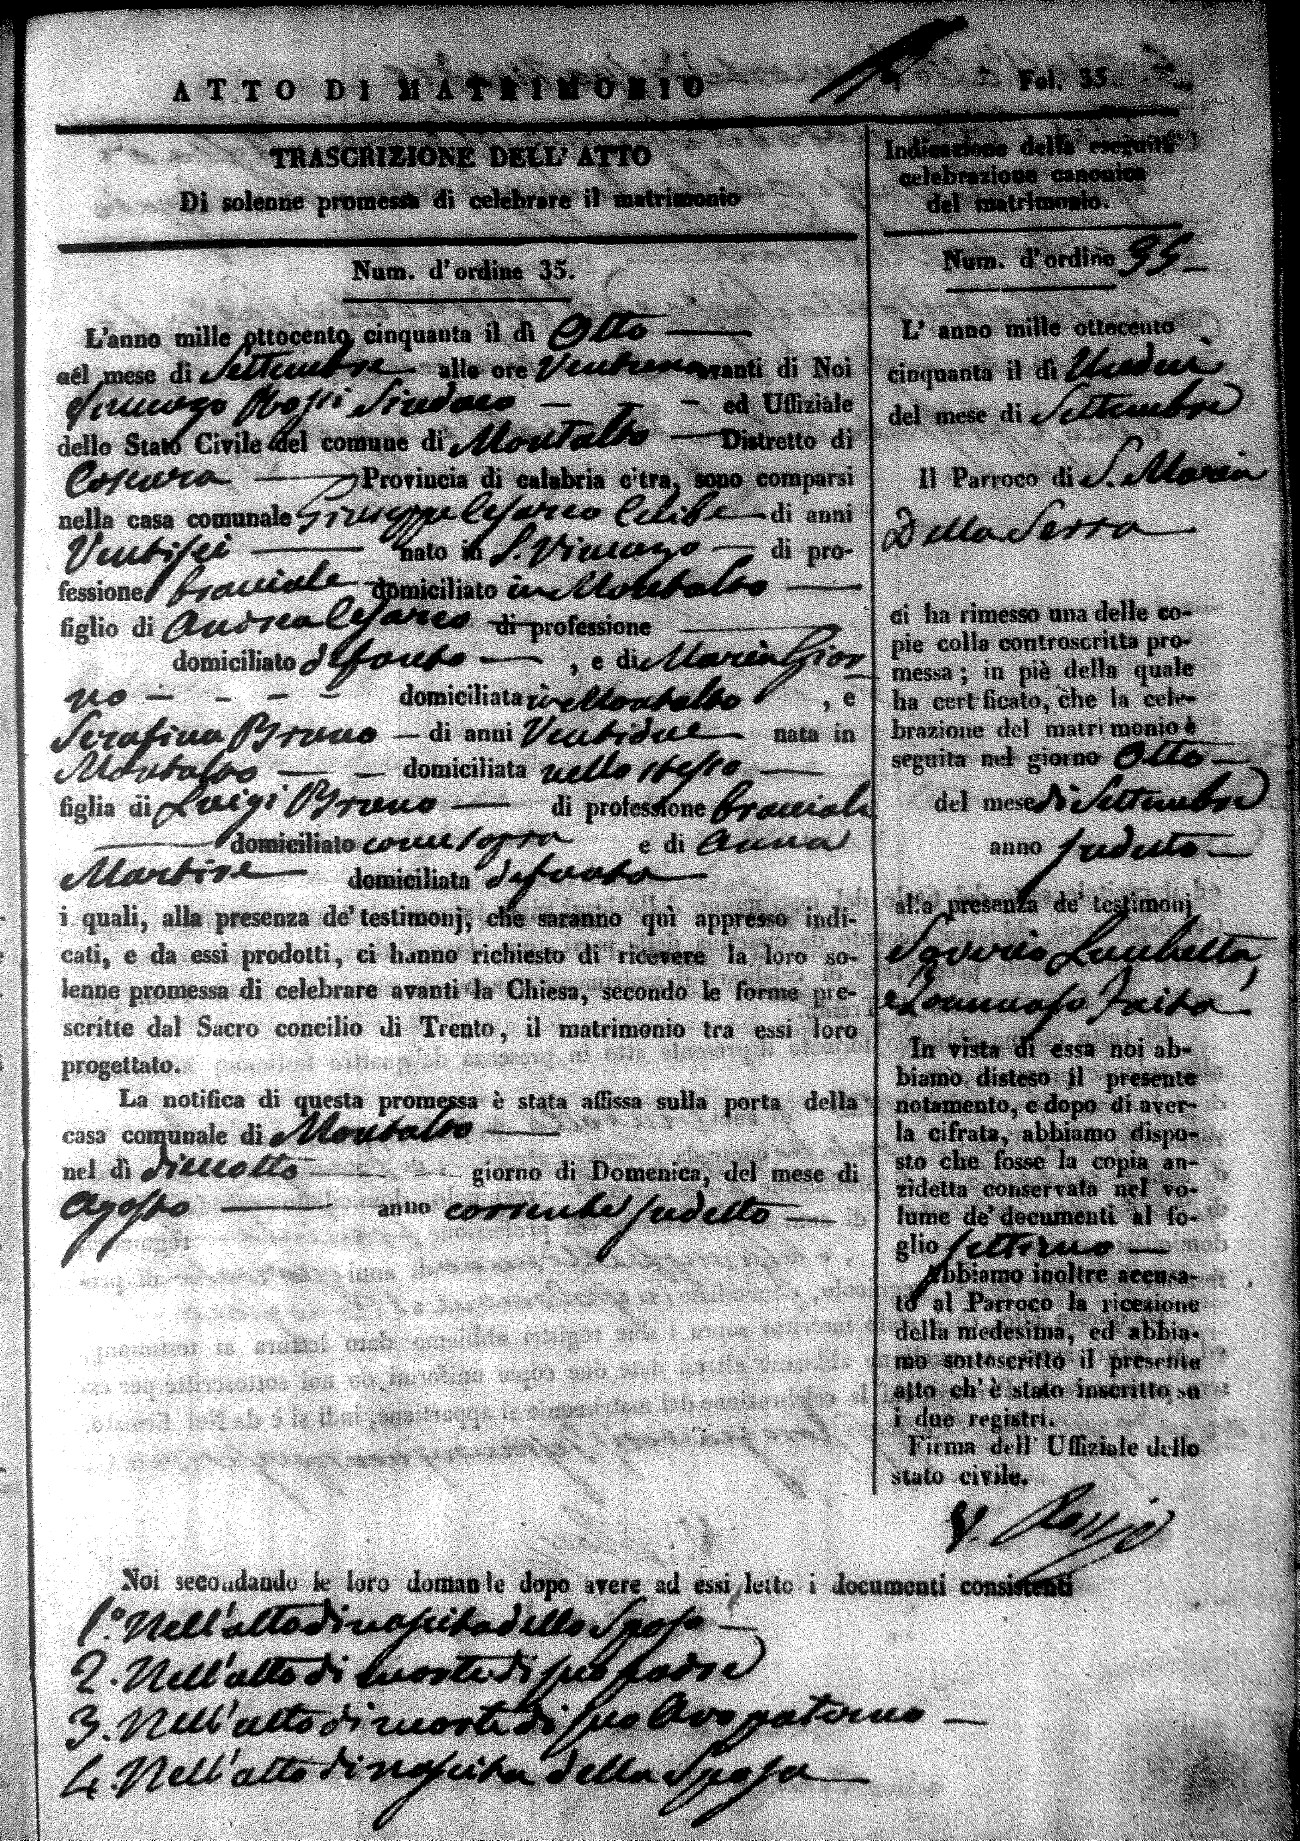 ATTO DI MATRIMONIO
Fol. 35
TRASCRIZIONE DELL' ATTO
Di solenne promessa di celebrare il matrimonio
Num. d'ordine 35.
L'anno mille ottocento cinquanta il dì Otto
nel mese di Settembre alle ore Ventuno avanti di Noi
Vincenzo Rossi Sindaco ed Uffiziale
dello Stato Civile del comune di Montalto Distretto di
Cosenza Provincia di calabria citra, sono comparsi
nella casa comunale Giuseppe Cesareo Celibe di anni
Ventisei nato in S. Vincenzo di pro-
fessione bracciale domiciliato in Montalto
figlio di Andrea Cesareo di professione
domiciliato defonto , e di Maria Gior
no domiciliata in Montalto , e
Serafina Bruno di anni Ventidue nata in
Montalto domiciliata nello stesso
figlia di Luigi Bruno di professione bracciale
domiciliato come sopra e di Anna
Martire domiciliata defonta
i quali, alla presenza de' testimonj, che saranno quì appresso indi-
cati, e da essi prodotti, ci hanno richiesto di ricevere la loro so-
lenne promessa di celebrare avanti la Chiesa, secondo le forme pre-
scritte dal Sacro concilio di Trento, il matrimonio tra essi loro
progettato.
La notifica di questa promessa è stata affissa sulla porta della
casa comunale di Montalto
nel dì diciotto giorno di Domenica, del mese di
Agosto anno corrente sudetto
Indicazione della eseguita
celebrazione canonica
del matrimonio.
Num. d'ordine 35
L' anno mille ottocento
cinquanta il dì Undeci
del mese di Settembre
Il Parroco di S. Maria
Della Serra
ci ha rimesso una delle co-
pie colla controscritta pro-
messa; in piè della quale
ha certificato, che la cele-
brazione del matrimonio è
seguita nel giorno Otto
del mese di Settembre
anno sudetto
alla presenza de' testimonj
Saverio Lucchetta
e Tommaso Faita
In vista di essa noi ab-
biamo disteso il presente
notamento, e dopo di aver-
la cifrata, abbiamo dispo-
sto che fosse la copia an-
zidetta conservata nel vo-
lume de' documenti al fo-
glio
Abbiamo inoltre accusa-
to al Parroco la ricezione
della medesima, ed abbia-
mo sottoscritto il presente
atto ch' è stato inscritto su
i due registri.
Firma dell' Uffiziale dello
stato civile.
V. Rossi
Noi secondando le loro domande dopo avere ad essi letto i documenti consistenti
1.° Nell'atto di nascita dello Sposo
2. Nell'atto di morte di suo padre
3. Nell'atto di morte di suo Avo paterno
4. Nell'atto di nascita della Sposa